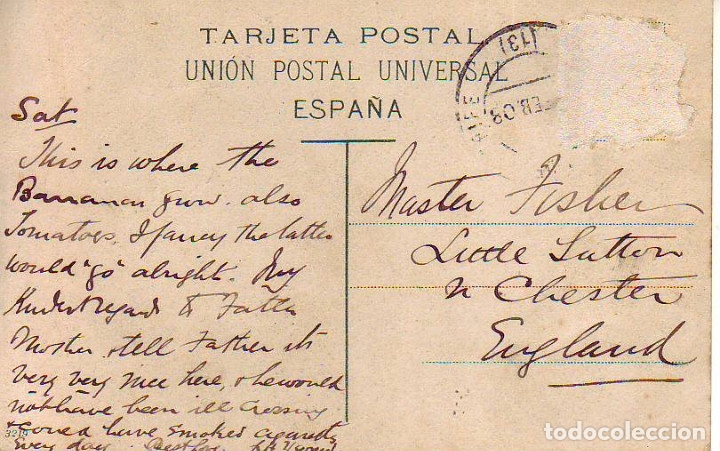 TARJETA POSTAL
UNIÓN POSTAL UNIVERSAL
ESPAÑA
(13)
EB.08
Sat
This is where the
Bananas grow. also
Tomatoes, I fancy the latter
would "go" alright. My
Kindest regards to Father
Mother & tell Father its
very very nice here, & he would
not have been ill crossing
& could have smoked cigarettes
Every day.
3219
Master Fisher
Little Sutton
n Chester
England
todocoleccion.net